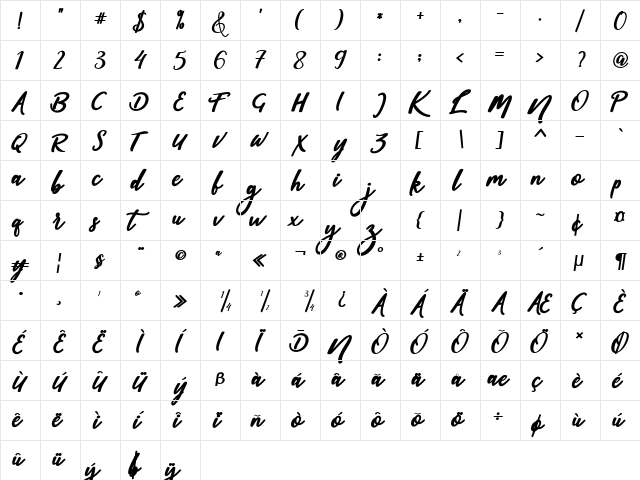 ! " # $ % & ' ( ) * + , - . / 0
1 2 3 4 5 6 7 8 9 : ; < = > ? @
A B C D E F G H I J K L M N O P
Q R S T U V W X Y Z [ \ ] ^ _ `
a b c d e f g h i j k l m n o p
q r s t u v w x y z { | } ~ ¢ ¤
¥ ¦ § ¨ © ª « ¬ ® ° ± ² ³ ´ µ ¶
· ¸ ¹ º » ¼ ½ ¾ ¿ À Á Ã A Æ Ç È
É Ê Ë Ì Í I Ï Ð Ñ Ò Ó Ô Õ Ö × Ø
Ù Ú Û Ü ý β à á â ã ä æ ç è é
ê ë ì í î ï ñ ò ó ô õ ö ÷ ø ù ú
û ü ý þ ÿ